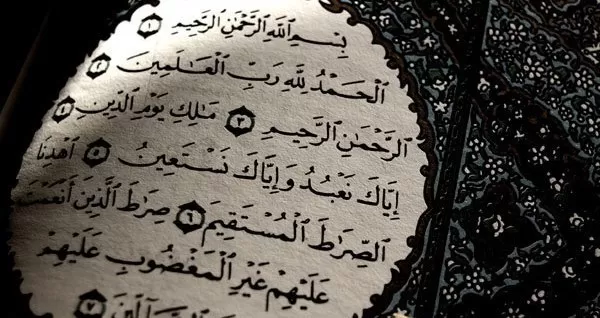 بِسْمِ ٱللَّهِ ٱلرَّحْمَٰنِ ٱلرَّحِيمِ ١
ٱلْحَمْدُ لِلَّهِ رَبِّ ٱلْعَٰلَمِينَ ٢
ٱلرَّحْمَٰنِ ٱلرَّحِيمِ ٣ مَٰلِكِ يَوْمِ ٱلدِّينِ ٤
إِيَّاكَ نَعْبُدُ وَإِيَّاكَ نَسْتَعِينُ ٥ ٱهْدِنَا
ٱلصِّرَٰطَ ٱلْمُسْتَقِيمَ ٦ صِرَٰطَ ٱلَّذِينَ أَنْعَمْتَ
عَلَيْهِمْ غَيْرِ ٱلْمَغْضُوبِ عَلَيْهِمْ
٧